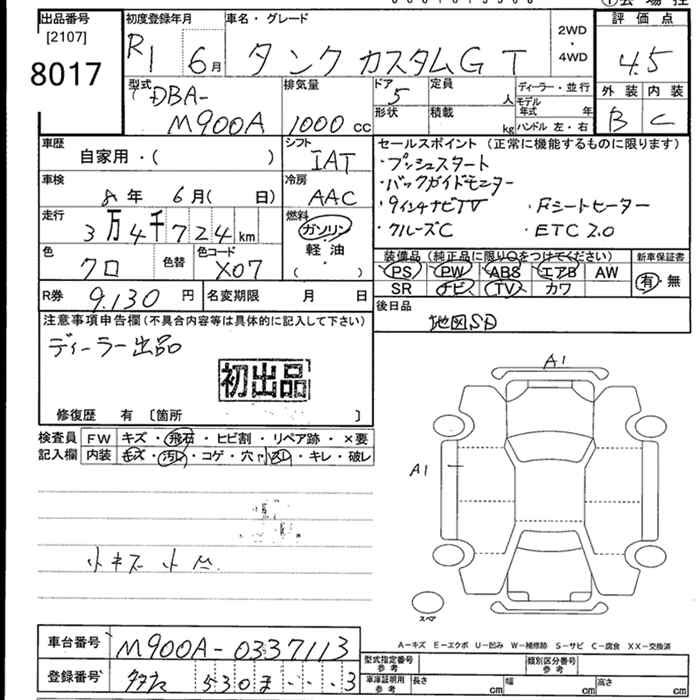 出品番号 [2107] 8017
初度登録年月 R1 6月
車名・グレード タンク カスタムG T
2WD・4WD
評価点 4.5
外装 内装 B C
型式 DBA-M900A
排気量 1000cc
ドア 5 定員 人
形状 積載 kg
ディーラー・並行
モデル年式 年
ハンドル 左・右
車歴 自家用・( )
シフト IAT
車検 8年 6月( 日)
冷房 AAC
走行 3万4千724km
燃料 ガソリン・軽油 ( )
色 クロ 色替 色コード X07
R券 9,130円 名変期限 月 日
セールスポイント (正常に機能するものに限ります)
・プッシュスタート
・バックガイドモニター
・9インチナビTV ・Fシートヒーター
・クルーズC ・ETC 2.0
装備品 (純正品に限り○をつけてください) 新車保証書
PS PW ABS エアB AW 有・無
SR ナビ TV カワ
後日品 地図SD
注意事項申告欄 (不具合内容等は具体的に記入して下さい)
ディーラー出品
初出品
修復歴 有 [箇所 ]
検査員 FW キズ・飛石・ヒビ割・リペア跡・×要
記入欄 内装 キズ・汚レ・コゲ・穴・スレ・キレ・破レ
A1
A1
小キズ 小
スペア
A－キズ E－エクボ U－凹み W－補修跡 S－サビ C－腐食 XX－交換済
車台番号 M900A-0337113
登録番号 530 ・・・3
型式指定番号 参考 類別区分番号 参考
車庫証明用 参考 長さ cm 幅 cm 高さ cm